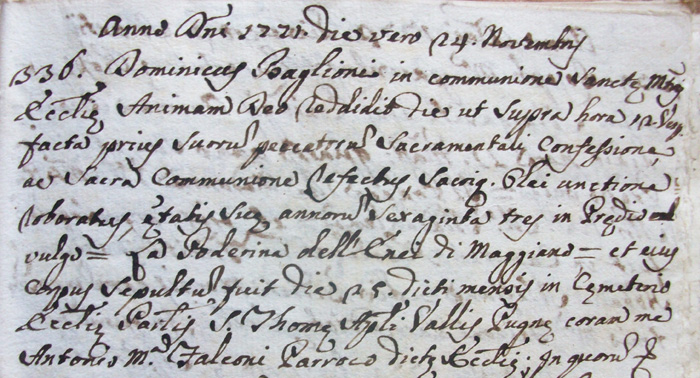 Anno Dni 1771. die vero 24. Novembris
336. Dominicus Baglioni in communione Sanctę Mris
Ecclię, Animam Deo reddidit die ut supra hora 12
facta prius suorū peccatorū Sacramentali Confessione,
ac Sacra Communione refectus, Sacriq. Olei unctione
roboratus, ętatis suę annorū sexaginta tres in Prędio
vulgo = La Poderina dell' Enei di Maggiano = et eius
Corpus sepultū fuit die 25. dicti mensis in Cęmeterio
Ecclię Parlis S. Thomę Apli Vallis Pugnę coram me
Antonio M.ª Falconi Parroco dictę Ecclię; In quorū